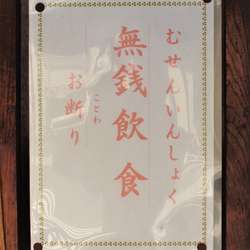 むせんいんしょく
無銭飲食
お断り
ことわ